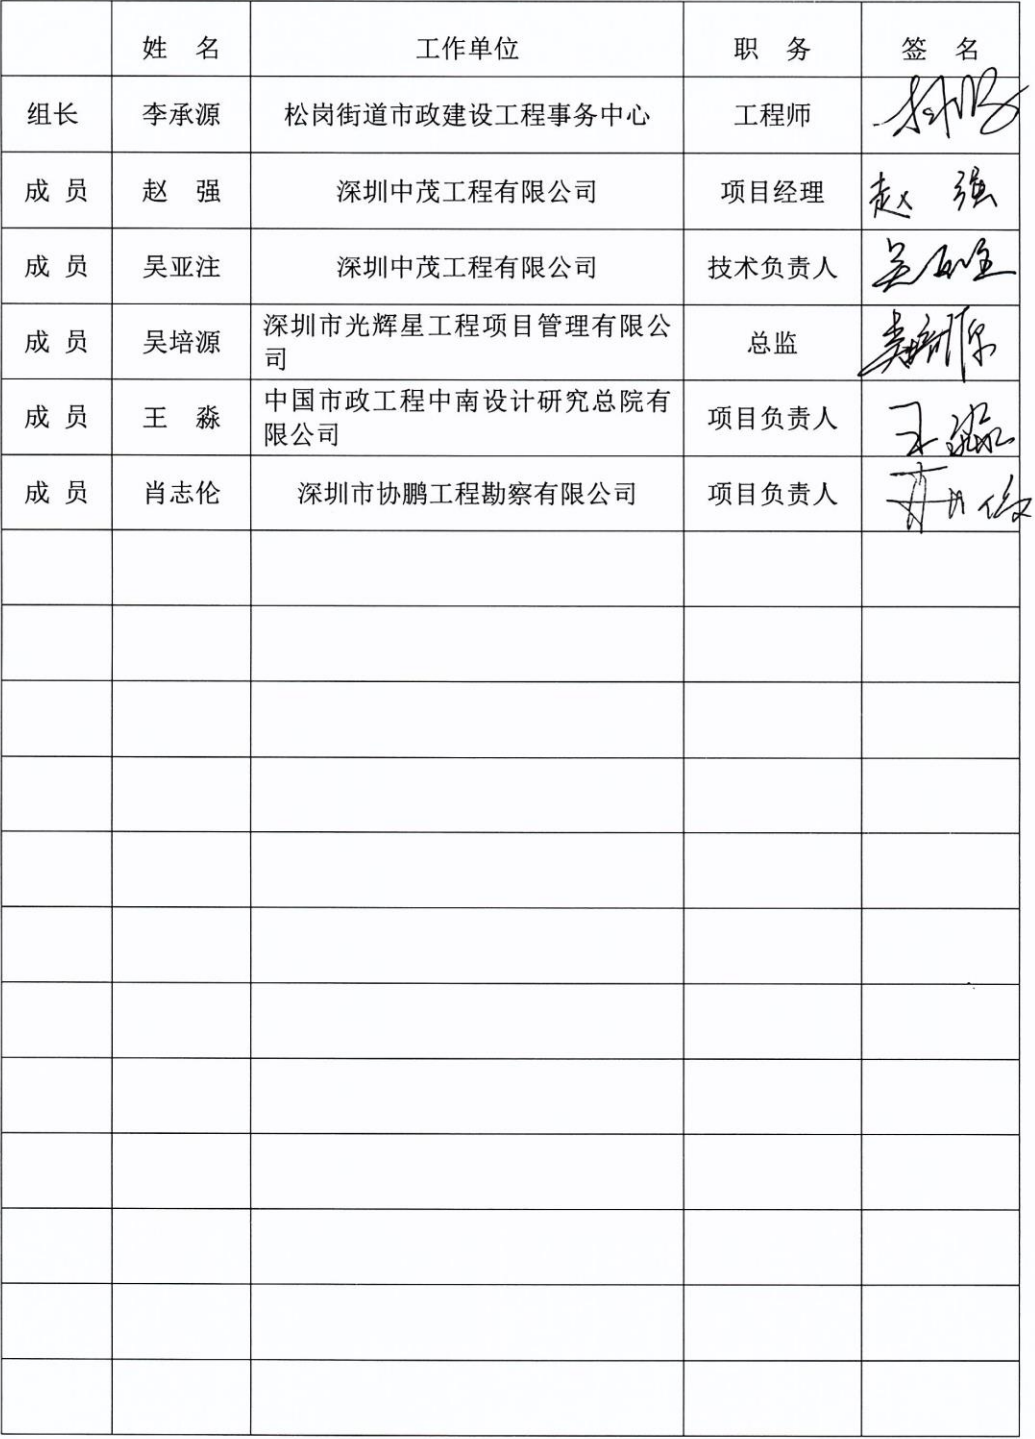 姓 名 工作单位 职 务 签 名
组长 李承源 松岗街道市政建设工程事务中心 工程师
成 员 赵 强 深圳中茂工程有限公司 项目经理 赵 强
成 员 吴亚注 深圳中茂工程有限公司 技术负责人
成 员 吴培源 深圳市光辉星工程项目管理有限公
司 总监
成 员 王 淼 中国市政工程中南设计研究总院有
限公司 项目负责人 王 淼
成 员 肖志伦 深圳市协鹏工程勘察有限公司 项目负责人